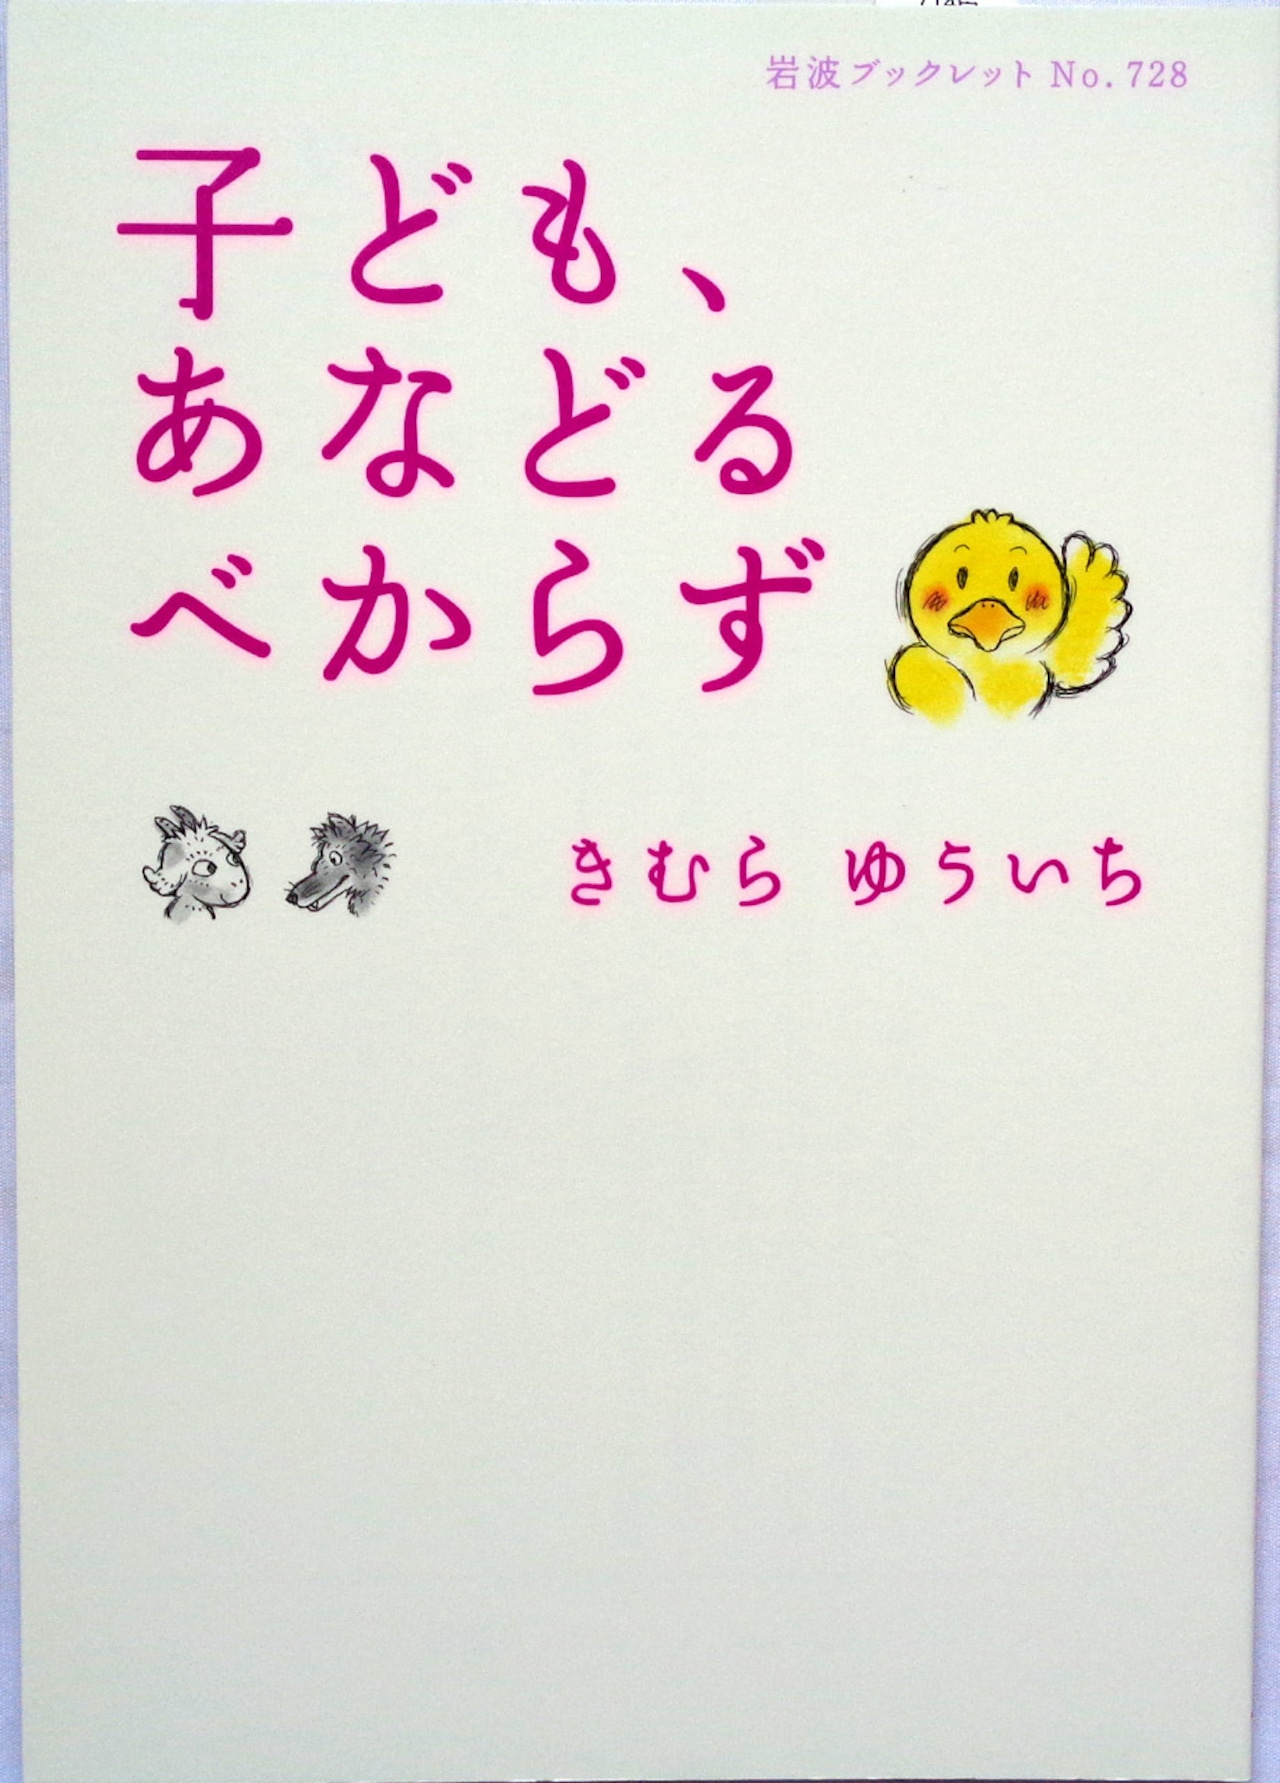 岩波ブックレット No. 728
子ども、
あなどる
べからず
きむら ゆういち